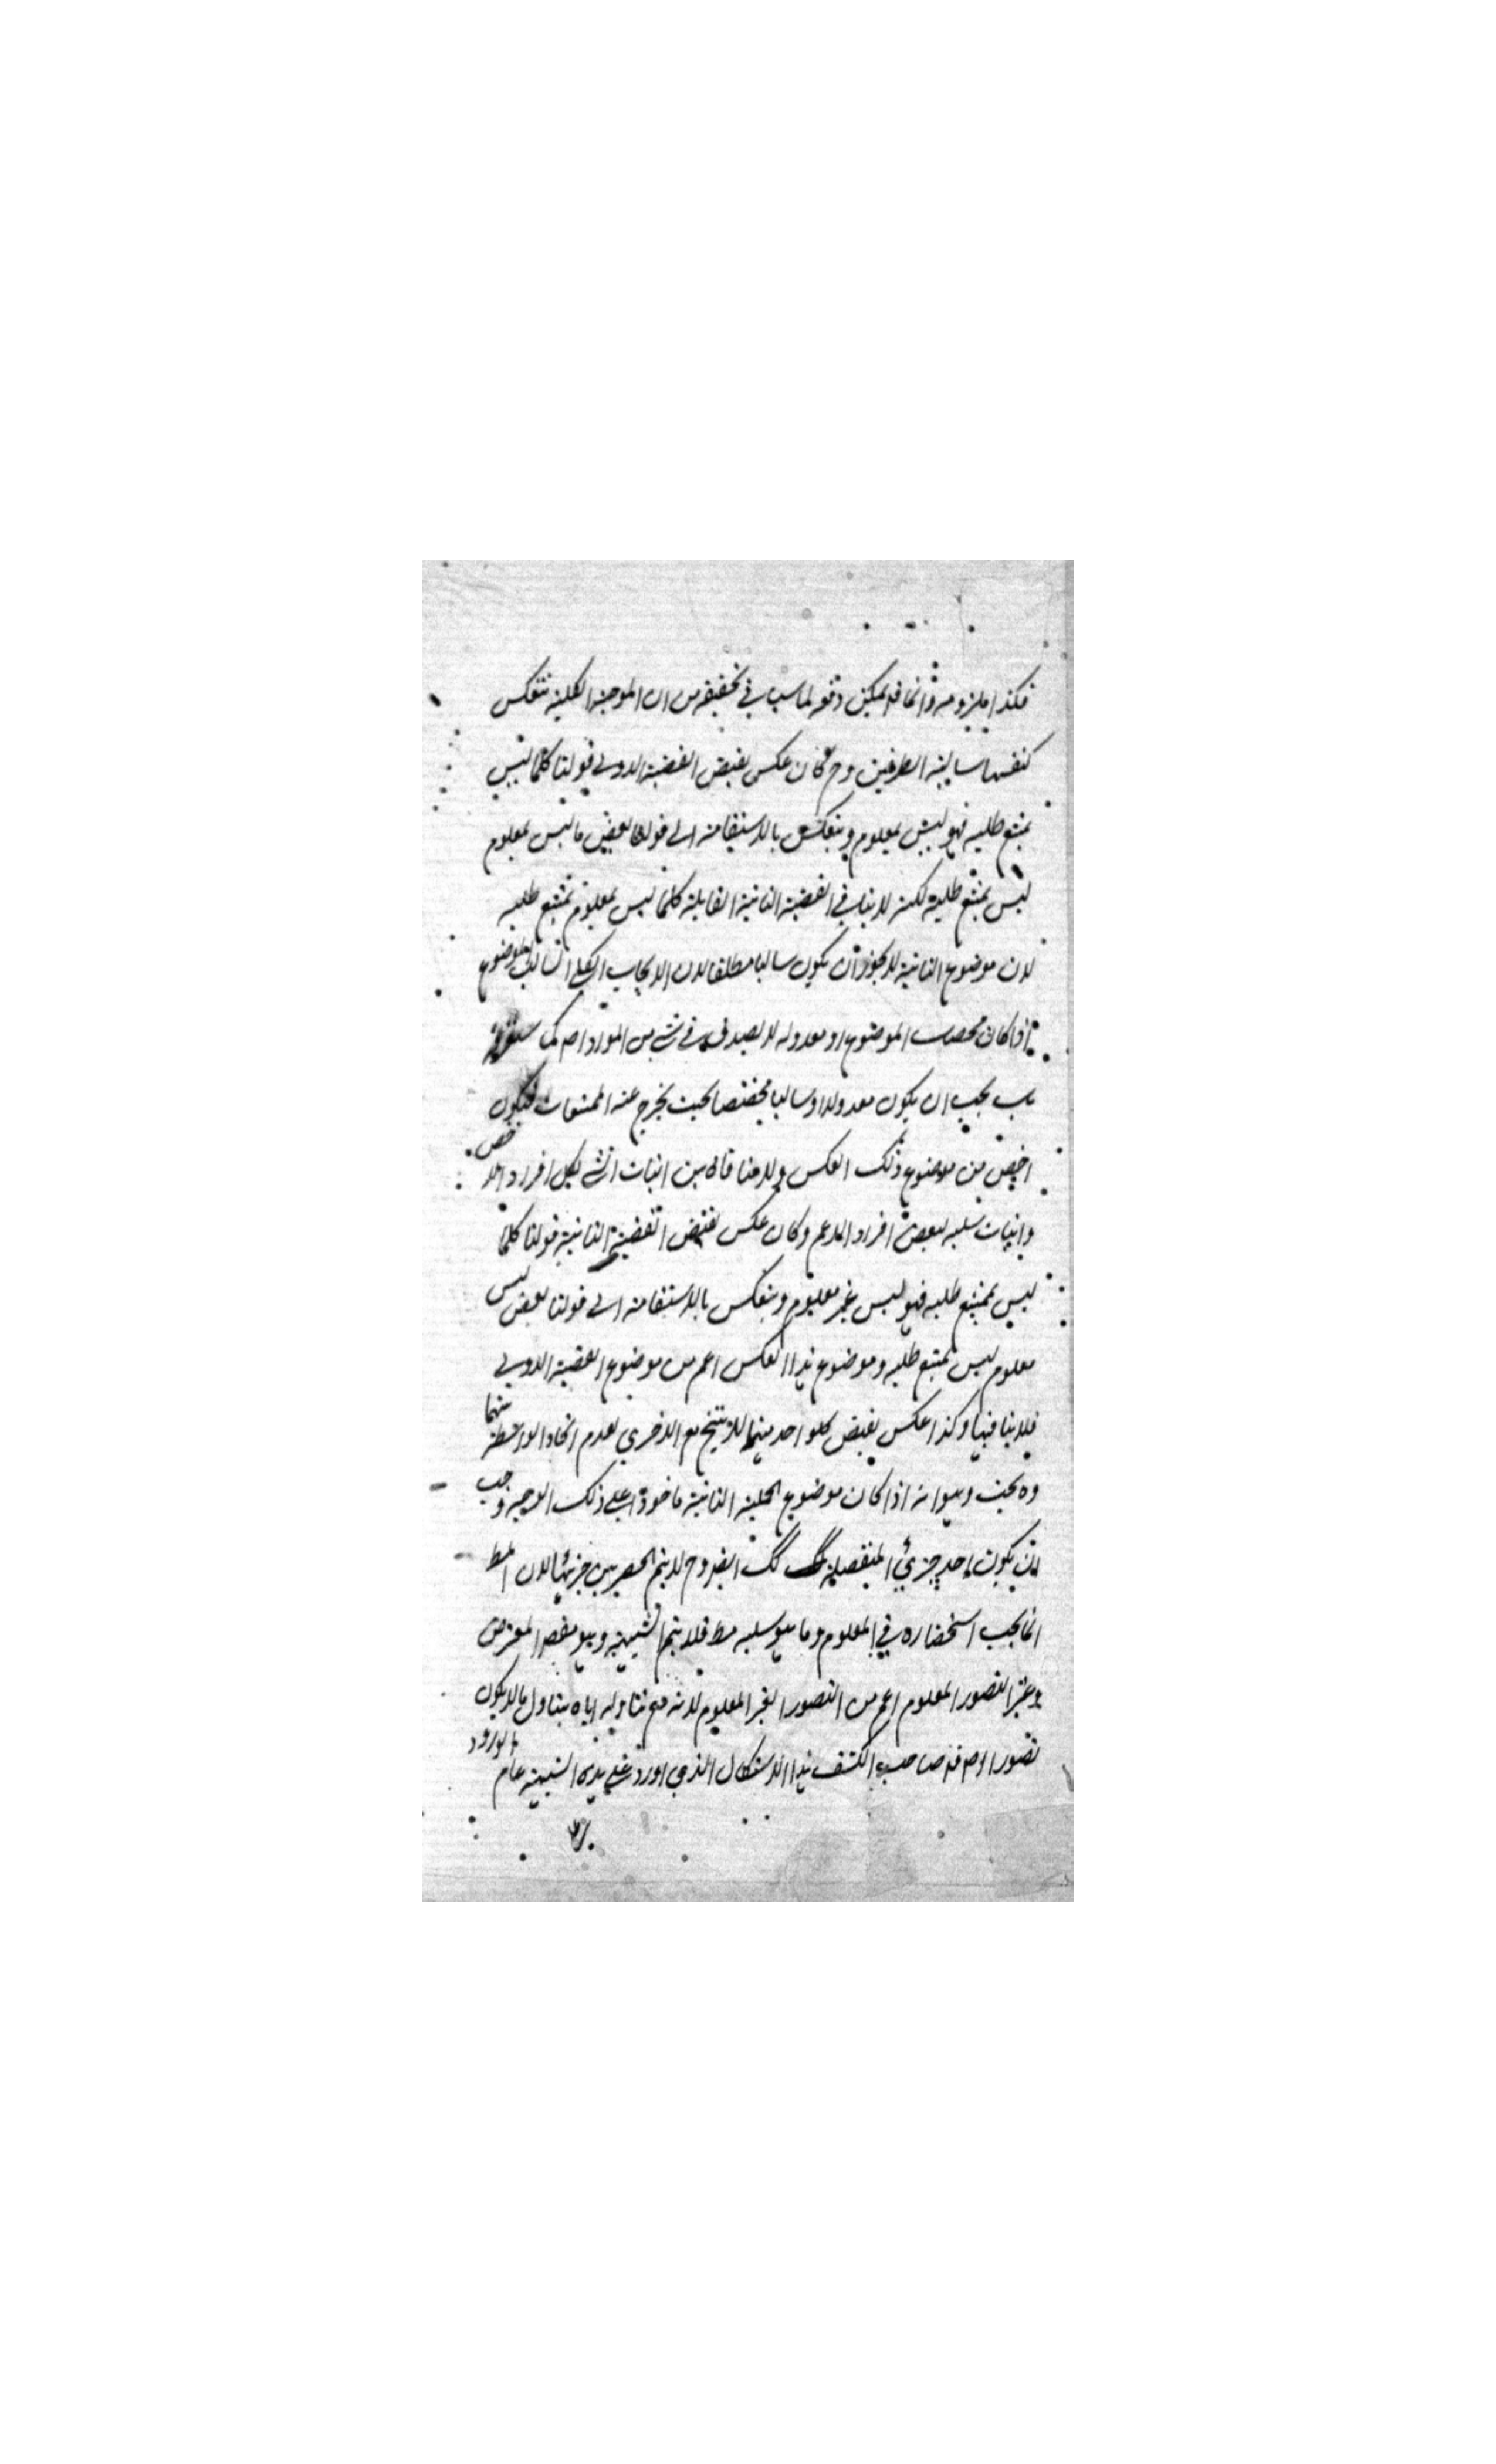 فكذا ملزومه وانما قد يمكن دفعه لما سيـاتي في تحقيقه من ان الموجبة الكلية تنعكس
كنفسها سالبة الطرفين وح كان عكس نقيض القضية الاولى قولنا كلما ليس
بممتنع طلبه فهو ليس بمعلوم وينعكس بالاستقامة الى قولنا بعض ما ليس بمعلوم
ليس بممتنع طلبه لكنه لا ينافي القضية الثانية القايلة كلما ليس بمعلوم يمتنع طلبه
لان موضوع الثانية لا يجوز ان يكون سالبا مطلقا لان الايجاب الكلي السالب الموضوع
اذا كان محصل الموضوع او معدوله لا يصدق في شي من المواد اصلا كما
بل يجب ان يكون معدولا او سالبا مختصا بحيث يخرج عنه الممتنعات فيكون
اخص من موضوع ذلك العكس ولا منافاة بين اثبات الشي لكل افراد الاخص
واثبات سلبه لبعض افراد الاعم وكان عكس نقيض القضية الثانية قولنا كلما
ليس بممتنع طلبه فهو ليس غير معلوم وينعكس بالاستقامة الى قولنا بعض ليس
معلوم ليس يمتنع طلبه وموضوع هذا العكس اعم من موضوع القضية الاولى
فلا ينافيها وكذا عكس نقيض كلو احد منهما لا ينتج مع الاخرى لعدم اتحاد الواسطة منهما
وه بحث وهو انه اذا كان موضوع الحملية الثانية ماخوذا على ذلك الوجه وجب
ان يكون احد جزئي المنفصلة كك ايضا وح لا يتم الحصر بين جزئيها لان المط
انما يجب استحضاره في المعلوم وما هو سلبه مط فلا يتم الشبهة وهو مقصد المعترض
وغير التصور المعلوم اعم من التصور الغير المعلوم لانه مع تناوله اياه يتناول ما لا يكون
تصورا اصلا قد صاحب الكشف هذا الاستكال الذي اورد على هذه الشبهة عام الورود